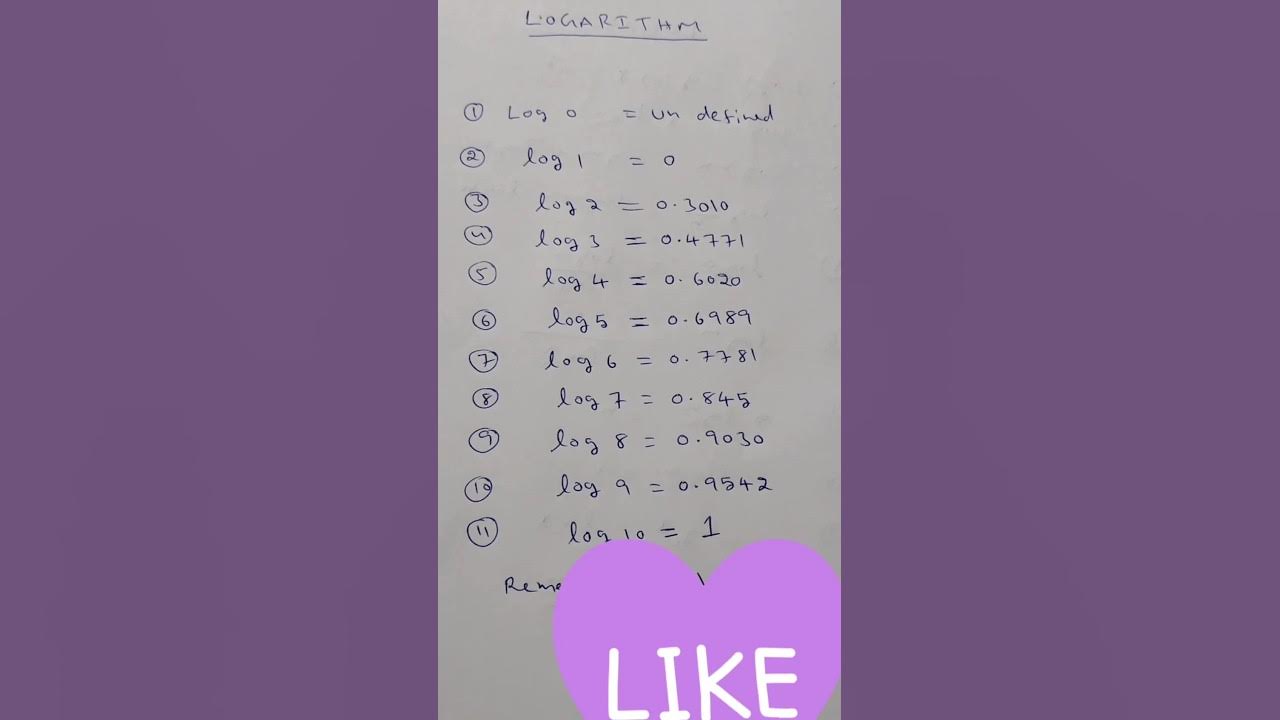 LOGARITHM
① Log 0 = un defined
② log 1 = 0
③ log 2 = 0.3010
④ log 3 = 0.4771
⑤ log 4 = 0.6020
⑥ log 5 = 0.6989
⑦ log 6 = 0.7781
⑧ log 7 = 0.845
⑨ log 8 = 0.9030
⑩ log 9 = 0.9542
⑪ log 10 = 1
LIKE